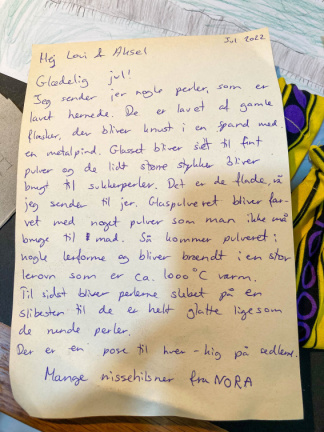 Jul 2022
Hej Lovi & Aksel
Glædelig jul!
Jeg sender jer nogle perler, som er
lavet hernede. De er lavet af gamle
flasker, der bliver knust i en spand med
en metalpind. Glasset bliver siet til fint
pulver og de lidt større stykker bliver
brugt til sukkerperler. Det er de flade, så
jeg sender til jer. Glaspulveret bliver far-
vet med noget pulver som man ikke må
bruge til mad. Så kommer pulveret i
nogle lerforme og bliver brændt i en stor
lerovn som er ca. 1000°C varm.
Til sidst bliver perlerne slebet på en
slibesten til de er helt glatte ligesom
de runde perler.
Der er en pose til hver - kig på sedlerne.
Mange nissehilsner fra NORA